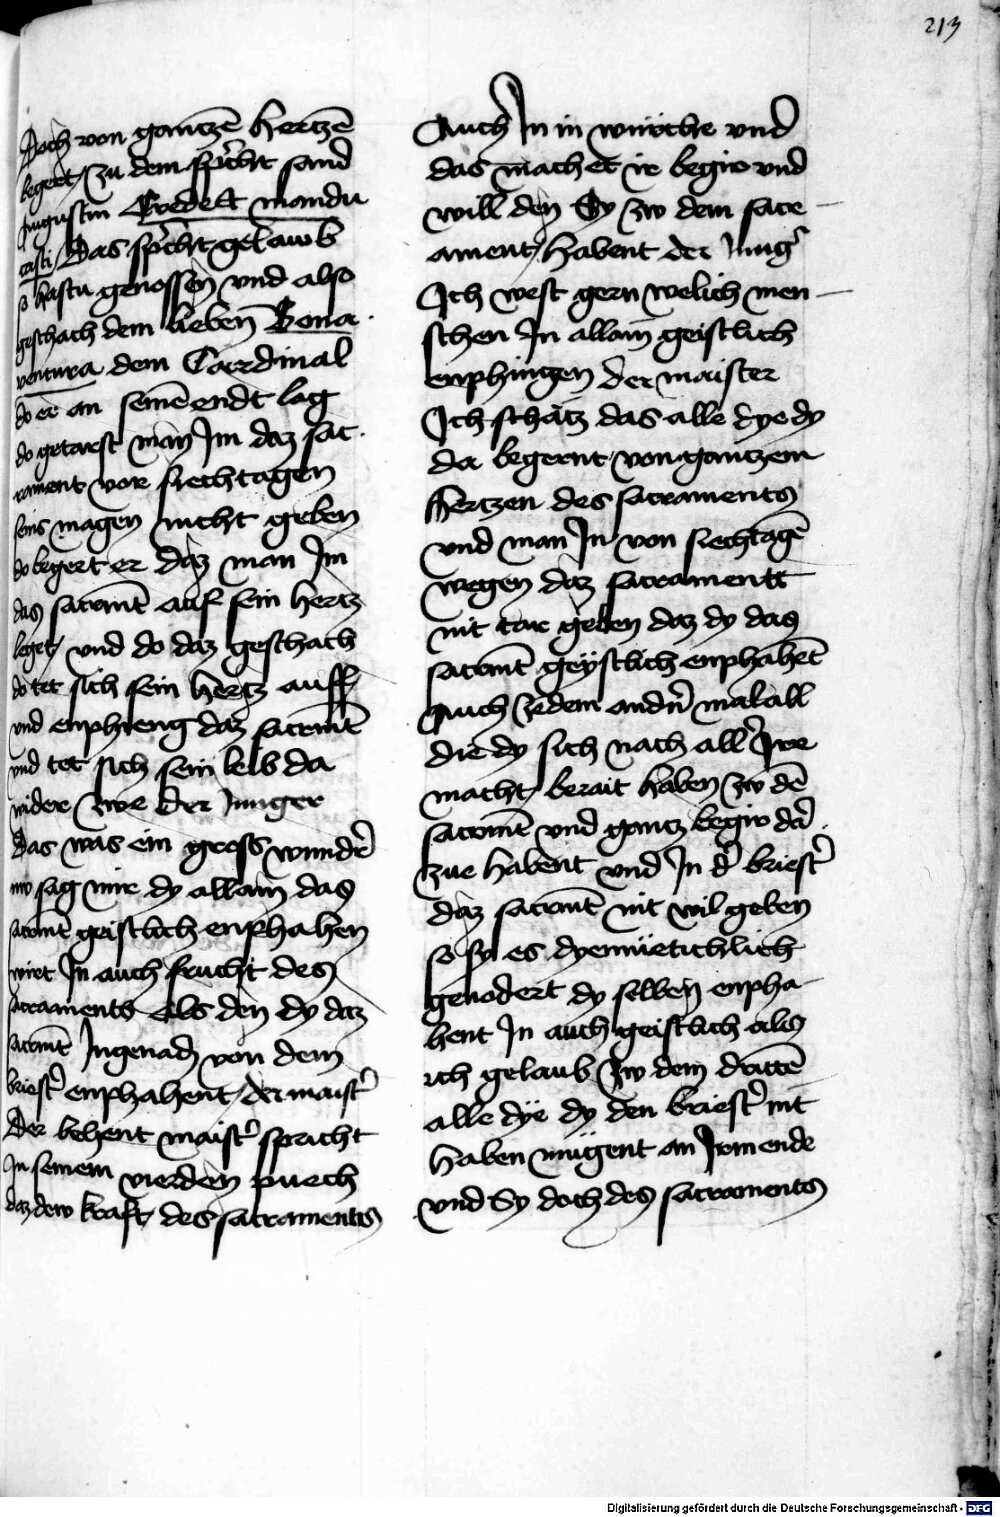 213
Doch von gantzē hertzē
begert / zu dem spͥcht sand
Augustin Crede et mandu
casti / Das spͥcht gelawb
so hastu genossen vnd also
geschach dem lieben Bona
ventura dem Cardinal
do er an seinē endt lag
do getarst man Im daz sac
rament vor siechtagen
seins magen nicht geben
do begert er daz man Im
das sacrmēt auf sein hertz
leget / vnd do daz geschach
do tet sich sein hertz auff /
vnd enphieng daz sacrmēt
vnd tet sich sein leib da
wider zwe Der Iunger
Das was ein gross wundͤr
nw sag mir dy allain das
sacrmēt geistlich enphahen
wirt In auch frucht des
sacraments Als den dy daz
sacrmēt Ingenad von dem
briestͤ enphahent / der maistͤ
Der behent maistͤ spricht
In seinem vierden puech
daz dew kraft / des sacraments
Auch In in wurche vnd
das machet ir begir vnd
will den Sy zw dem sacr
ament / habent der Iungͤ
Ich west gern welich men
schen In allain geistlich
enphingen der maister
Ich schätz das alle dye dy
da begernt von gantzem
Hertzen des sacraments
vnd man In von siechtagē
wegen daz sacramentt
nit tar geben daz dy das
sacrmēt geystlich enphahēt
Auch zedem andn̄ mal all
die dy sich nach allͤ Irͤe
macht / berait haben zw dē
sacrmēt vnd gantz begir dar
zue habent vnd In dͤ briestͤ
daz sacrmēt nit wil geben
so sy es dyemüetichlich
genodert dy selben enpha
hent In auch geistlich als
ich gelaub Zw dem drittē
alle dye dy den briestͤ nit
haben mügent an Irm ende
vnd Sy doch des sacraments
Digitalisierung gefördert durch die Deutsche Forschungsgemeinschaft - DFG